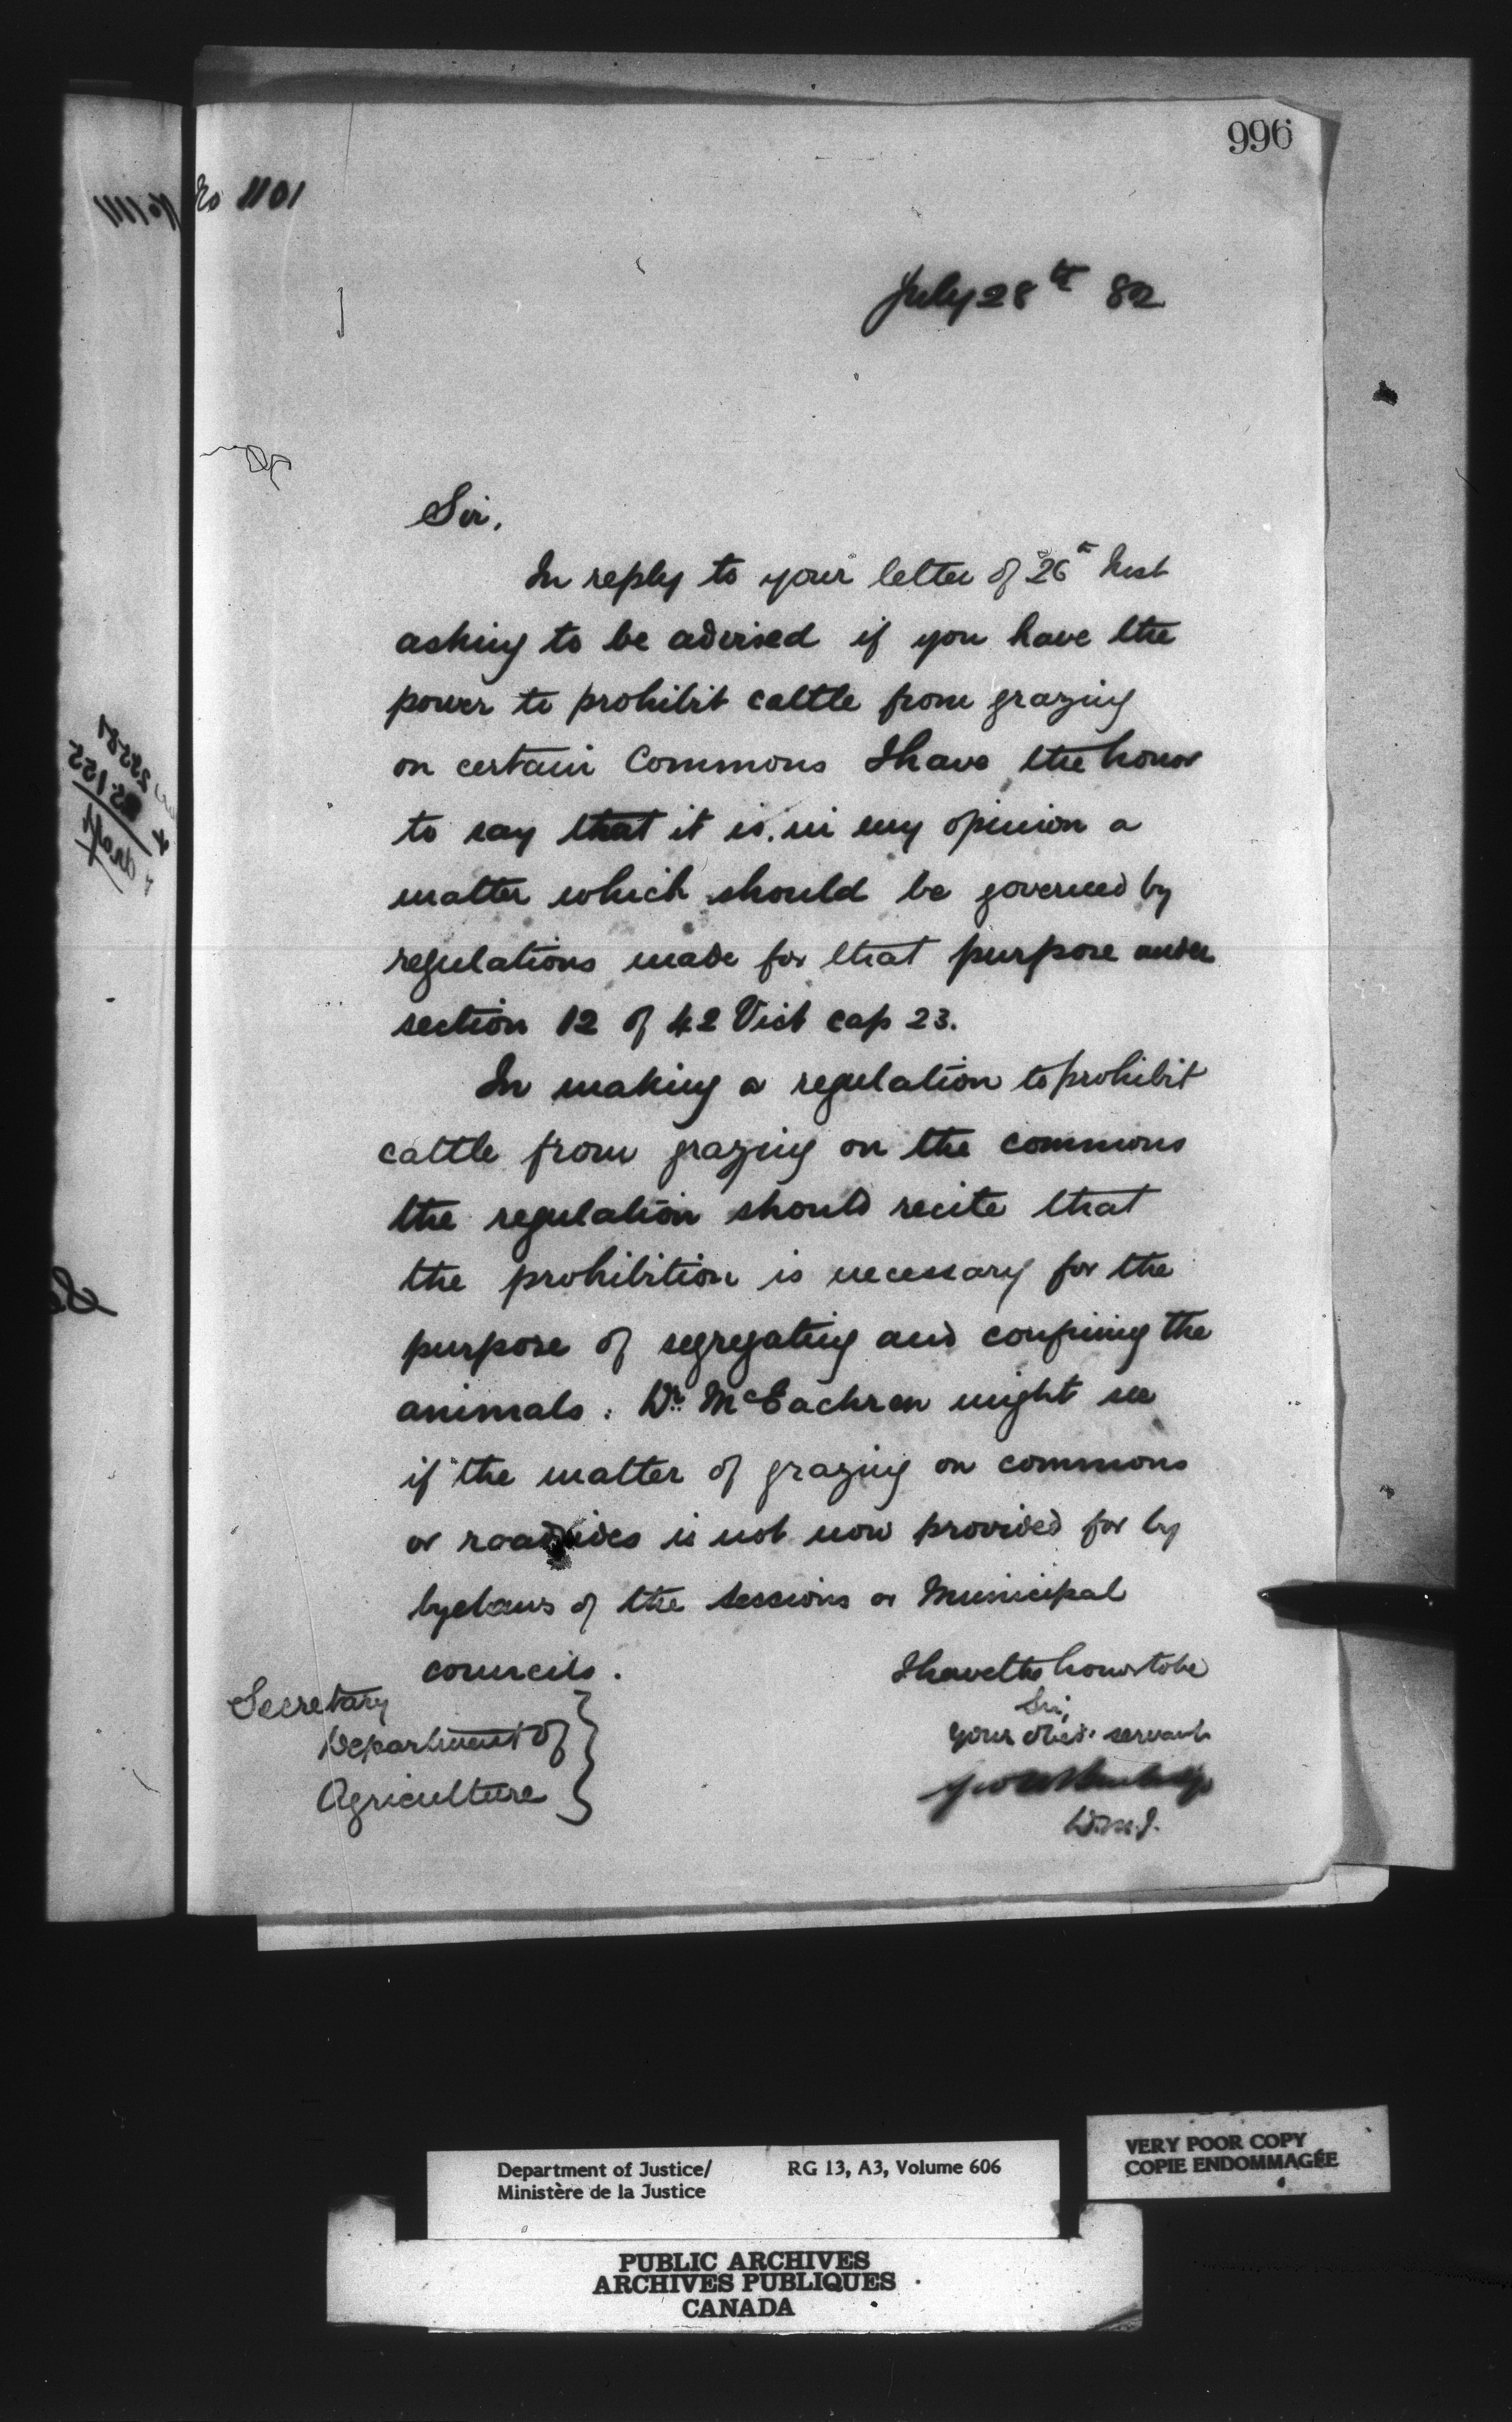 996
No 1101
July 28th 82
Sir,
In reply to your letter of 26th Inst
asking to be advised if you have the
power to prohibit cattle from grazing
on certain Commons I have the honor
to say that it is in my opinion a
matter which should be governed by
regulations made for that purpose under
section 12 of 42 Vict cap 23.
In making a regulation to prohibit
cattle from grazing on the commons
the regulation should recite that
the prohibition is necessary for the
purpose of segregating and confining the
animals. Dr. McEachren might see
if the matter of grazing on commons
or roadsides is not now provided for by
byelaws of the sessions or Municipal
councils.
I have the honor to be
Sir,
your obed. servant
Geo W Burbidge
D.M.J.
Secretary
Department of
Agriculture
VERY POOR COPY
COPIE ENDOMMAGÉE
Department of Justice/ RG 13, A3, Volume 606
Ministère de la Justice
PUBLIC ARCHIVES
ARCHIVES PUBLIQUES
CANADA